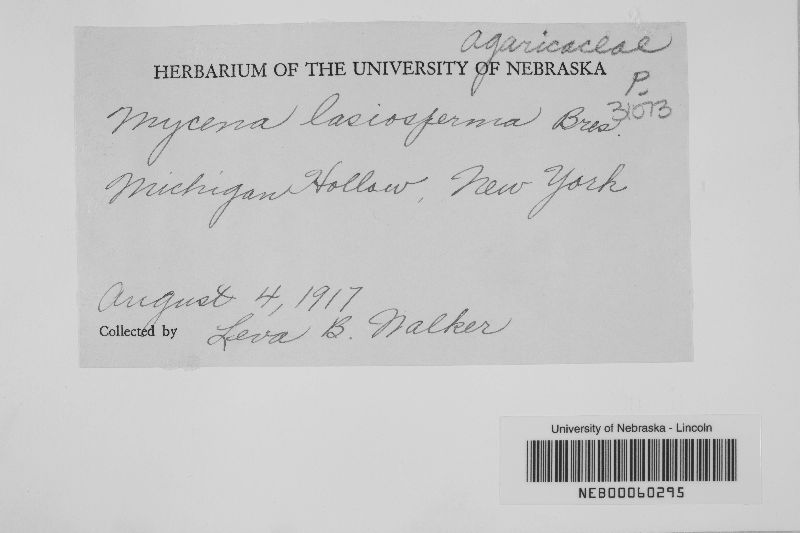 Agaricaceae
HERBARIUM OF THE UNIVERSITY OF NEBRASKA
P-
31073
Mycena lasiosperma Bres.
Michigan Hollow, New York
August 4, 1917
Collected by Leva B. Walker
University of Nebraska - Lincoln
NEB00060295